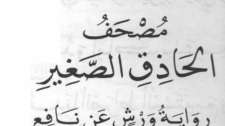 مُصْحَفُ
الحَاذِقِ الصَّغِيرِ
رِوَايَةُ وَرْشٍ عَن نَافِعٍ